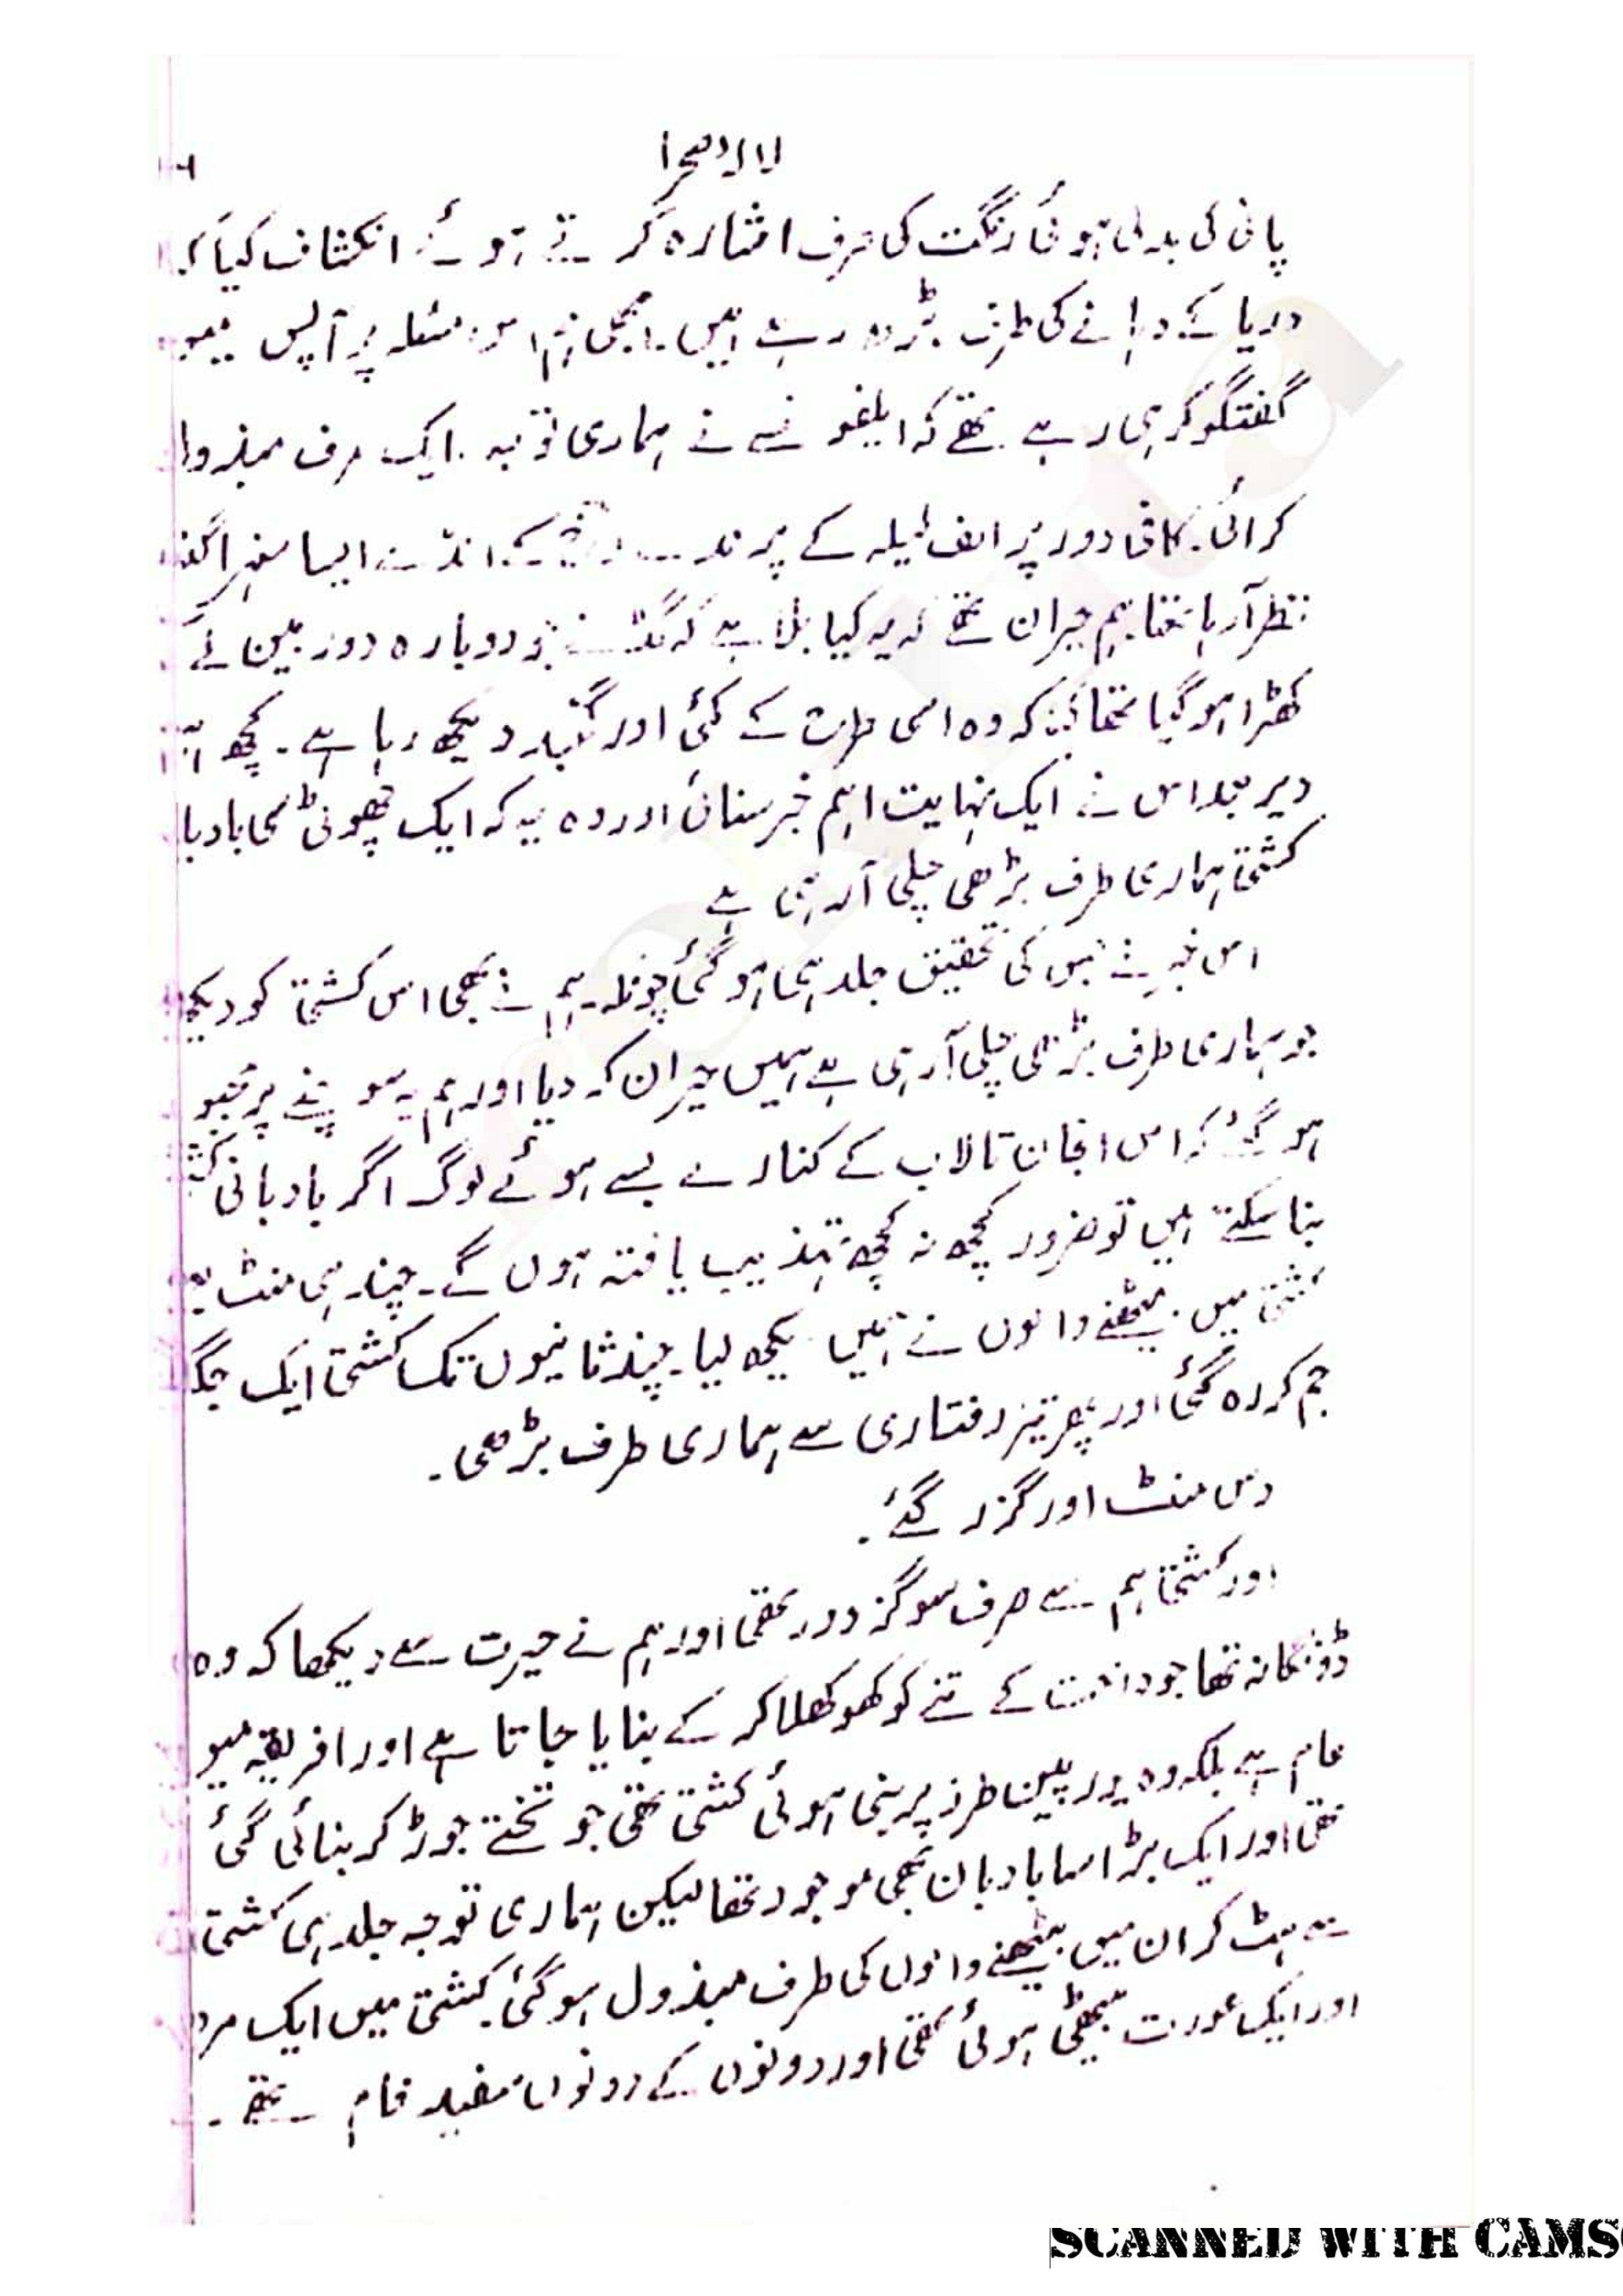 لالہ صحرا
پانی کی بدلی ہوئی رنگت کی طرف اشارہ کرتے ہوئے انکشاف کیا کہ
دریا کے دہانے کی طرف بڑھ رہے ہیں. ابھی ہم اس مسئلہ پر آپس میں
گفتگو کر ہی رہے تھے کہ ایلفونسے نے ہماری توجہ ایک طرف مبذول
کرائی. کافی دور پر الف لیلہ کے پرندے کے انڈے ایسا سفید گنبد
نظر آرہا تھا ہم حیران تھے کہ یہ کیا بلا ہے کہ گڈ نے جو دوبارہ دور بین لے کر
کھڑا ہو گیا تھا کہ وہ اسی طرح کے کئی اور گنبد دیکھ رہا ہے۔ کچھ ہی
دیر بعد اس نے ایک نہایت اہم خبر سنائی اور وہ یہ کہ ایک چھوٹی سی بادبا
کشتی ہماری طرف بڑھی چلی آرہی ہے
اس خبر کی تحقیق جلد ہی ہو گئی چونکہ ہم نے بھی اس کشتی کو دیکھ
جو ہماری طرف بڑھی چلی آرہی ہے ہمیں حیران کر دیا اور ہم یہ سوچنے پر مجبو
ہو گئے کہ اس انجان تالاب کے کنارے بسے ہوئے لوگ اگر بادبانی کشتی
بنا سکتے ہیں تو ضرور کچھ نہ کچھ تہذیب یافتہ ہوں گے۔ چند ہی منٹ بعد
کشتی میں بیٹھنے والوں نے ہمیں دیکھ لیا۔ چند ثانیوں تک کشتی ایک جگہ
جم کر رہ گئی اور پھر تیز رفتاری سے ہماری طرف بڑھی۔
دس منٹ اور گزر گئے.
اور کشتی ہم سے صرف سو گز دور تھی اور ہم نے حیرت سے دیکھا کہ وہ
ڈونگا نہ تھا جو درخت کے تنے کو کھوکھلا کر کے بنایا جاتا ہے اور افریقہ میں
عام ہے بلکہ وہ یورپین طرز پر بنی ہوئی کشتی تھی جو تختے جوڑ کر بنائی گئی
تھی اور ایک بڑا سا بادبان بھی موجود تھا لیکن ہماری توجہ جلد ہی کشتی
سے ہٹ کر ان میں بیٹھنے والوں کی طرف مبذول ہو گئی. کشتی میں ایک مرد
اور ایک عورت بیٹھی ہوئی تھی اور دونوں کے دونوں سفید فام تھے۔
SCANNED WITH CAMS